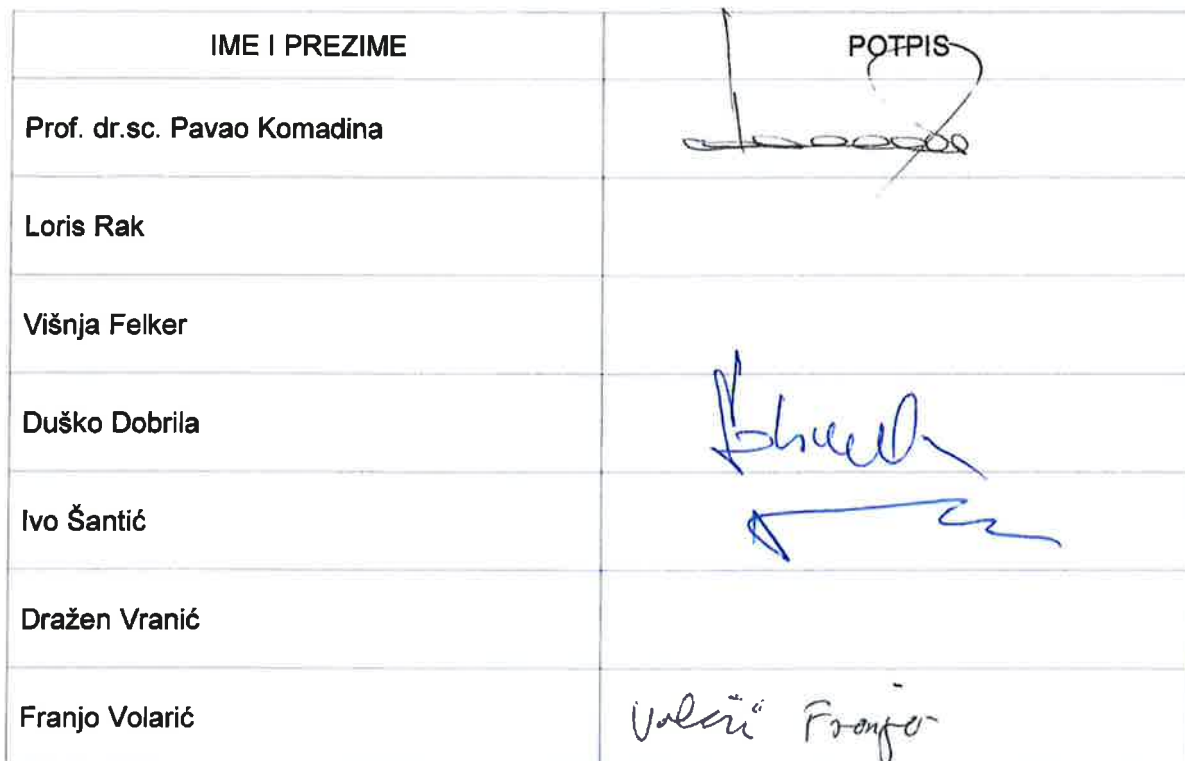 IME I PREZIME POTPIS
Prof. dr.sc. Pavao Komadina
Loris Rak
Višnja Felker
Duško Dobrila
Ivo Šantić
Dražen Vranić
Franjo Volarić Volarić Franjo